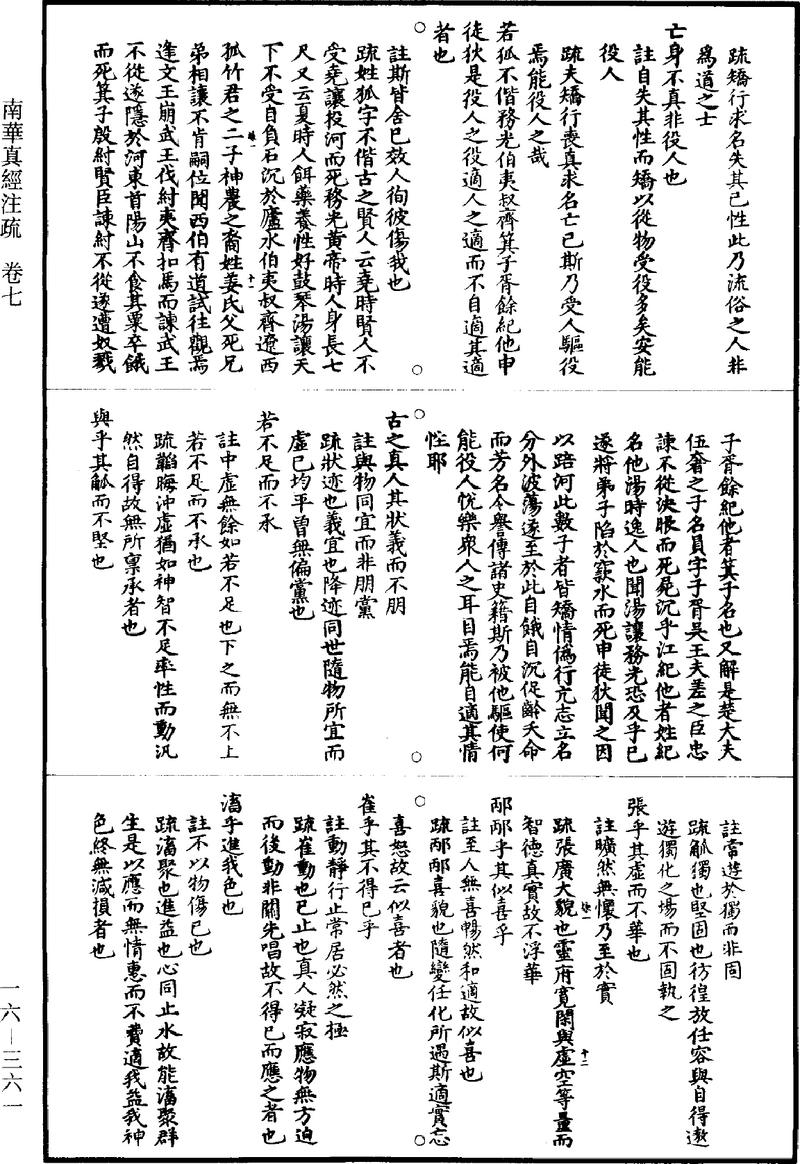 南華真經注疏　卷七
一六—三六一
疏矯行求名失其己性此乃流俗之人非
為道之士
亡身不真非役人也
註自失其性而矯以從物受役多矣安能
役人
疏夫矯行喪真求名亡己斯乃受人驅役
焉能役人之哉
若狐不偕務光伯夷叔齊箕子胥餘紀他申
徒狄是役人之役適人之適而不自適其適
者也
註斯皆舍己效人徇彼傷我也
疏姓狐字不偕古之賢人云堯時賢人不
受堯讓投河而死務光黃帝時人身長七
尺又云夏時人餌藥養性好鼓琴湯讓天
下不受自負石沉於廬水伯夷叔齊遼西
孤竹君之二子神農之裔姓姜氏父死兄
弟相讓不肯嗣位聞西伯有道試往觀焉
逢文王崩武王伐紂夷齊扣馬而諫武王
不從遂隱於河東首陽山不食其粟卒餓
而死箕子殷紂賢臣諫紂不從遂遭奴戮
子胥餘紀他者箕子名也又解是楚大夫
伍奢之子名員字子胥吳王夫差之臣忠
諫不從決眼而死屍沉乎江紀他者姓紀
名他湯時逸人也聞湯讓務光恐及乎己
遂將弟子陷於窾水而死申徒狄聞之因
以踣河此數子者皆矯情偽行亢志立名
分外波蕩遂至於此自餓自沉促齡夭命
而芳名令譽傳諸史籍斯乃被他驅使何
能役人悅樂衆人之耳目焉能自適其情
性耶
古之真人其狀義而不朋
註與物同宜而非朋黨
疏狀迹也義宜也降迹同世隨物所宜而
虛己均平曾無偏黨也
若不足而不承
註中虛無餘如若不足也下之而無不上
若不足而不承也
疏韜晦沖虛猶如神智不足率性而動汎
然自得故無所稟承者也
與乎其觚而不堅也
註常遊於獨而非固
疏觚獨也堅固也彷徨放任容與自得遨
遊獨化之場而不固執之
張乎其虛而不華也
註曠然無懷乃至於實
疏張廣大貌也靈府寬閑與虛空等量而
智德真實故不浮華
邴邴乎其似喜乎
註至人無喜暢然和適故似喜也
疏邴邴喜貌也隨變任化所遇斯適實忘
喜怒故云似喜者也
崔乎其不得已乎
註動靜行止常居必然之極
疏崔動也已止也真人凝寂應物無方迫
而後動非關先唱故不得已而應之者也
滀乎進我色也
註不以物傷己也
疏滀聚也進益也心同止水故能滀聚群
生是以應而無情惠而不費適我益我神
色終無減損者也